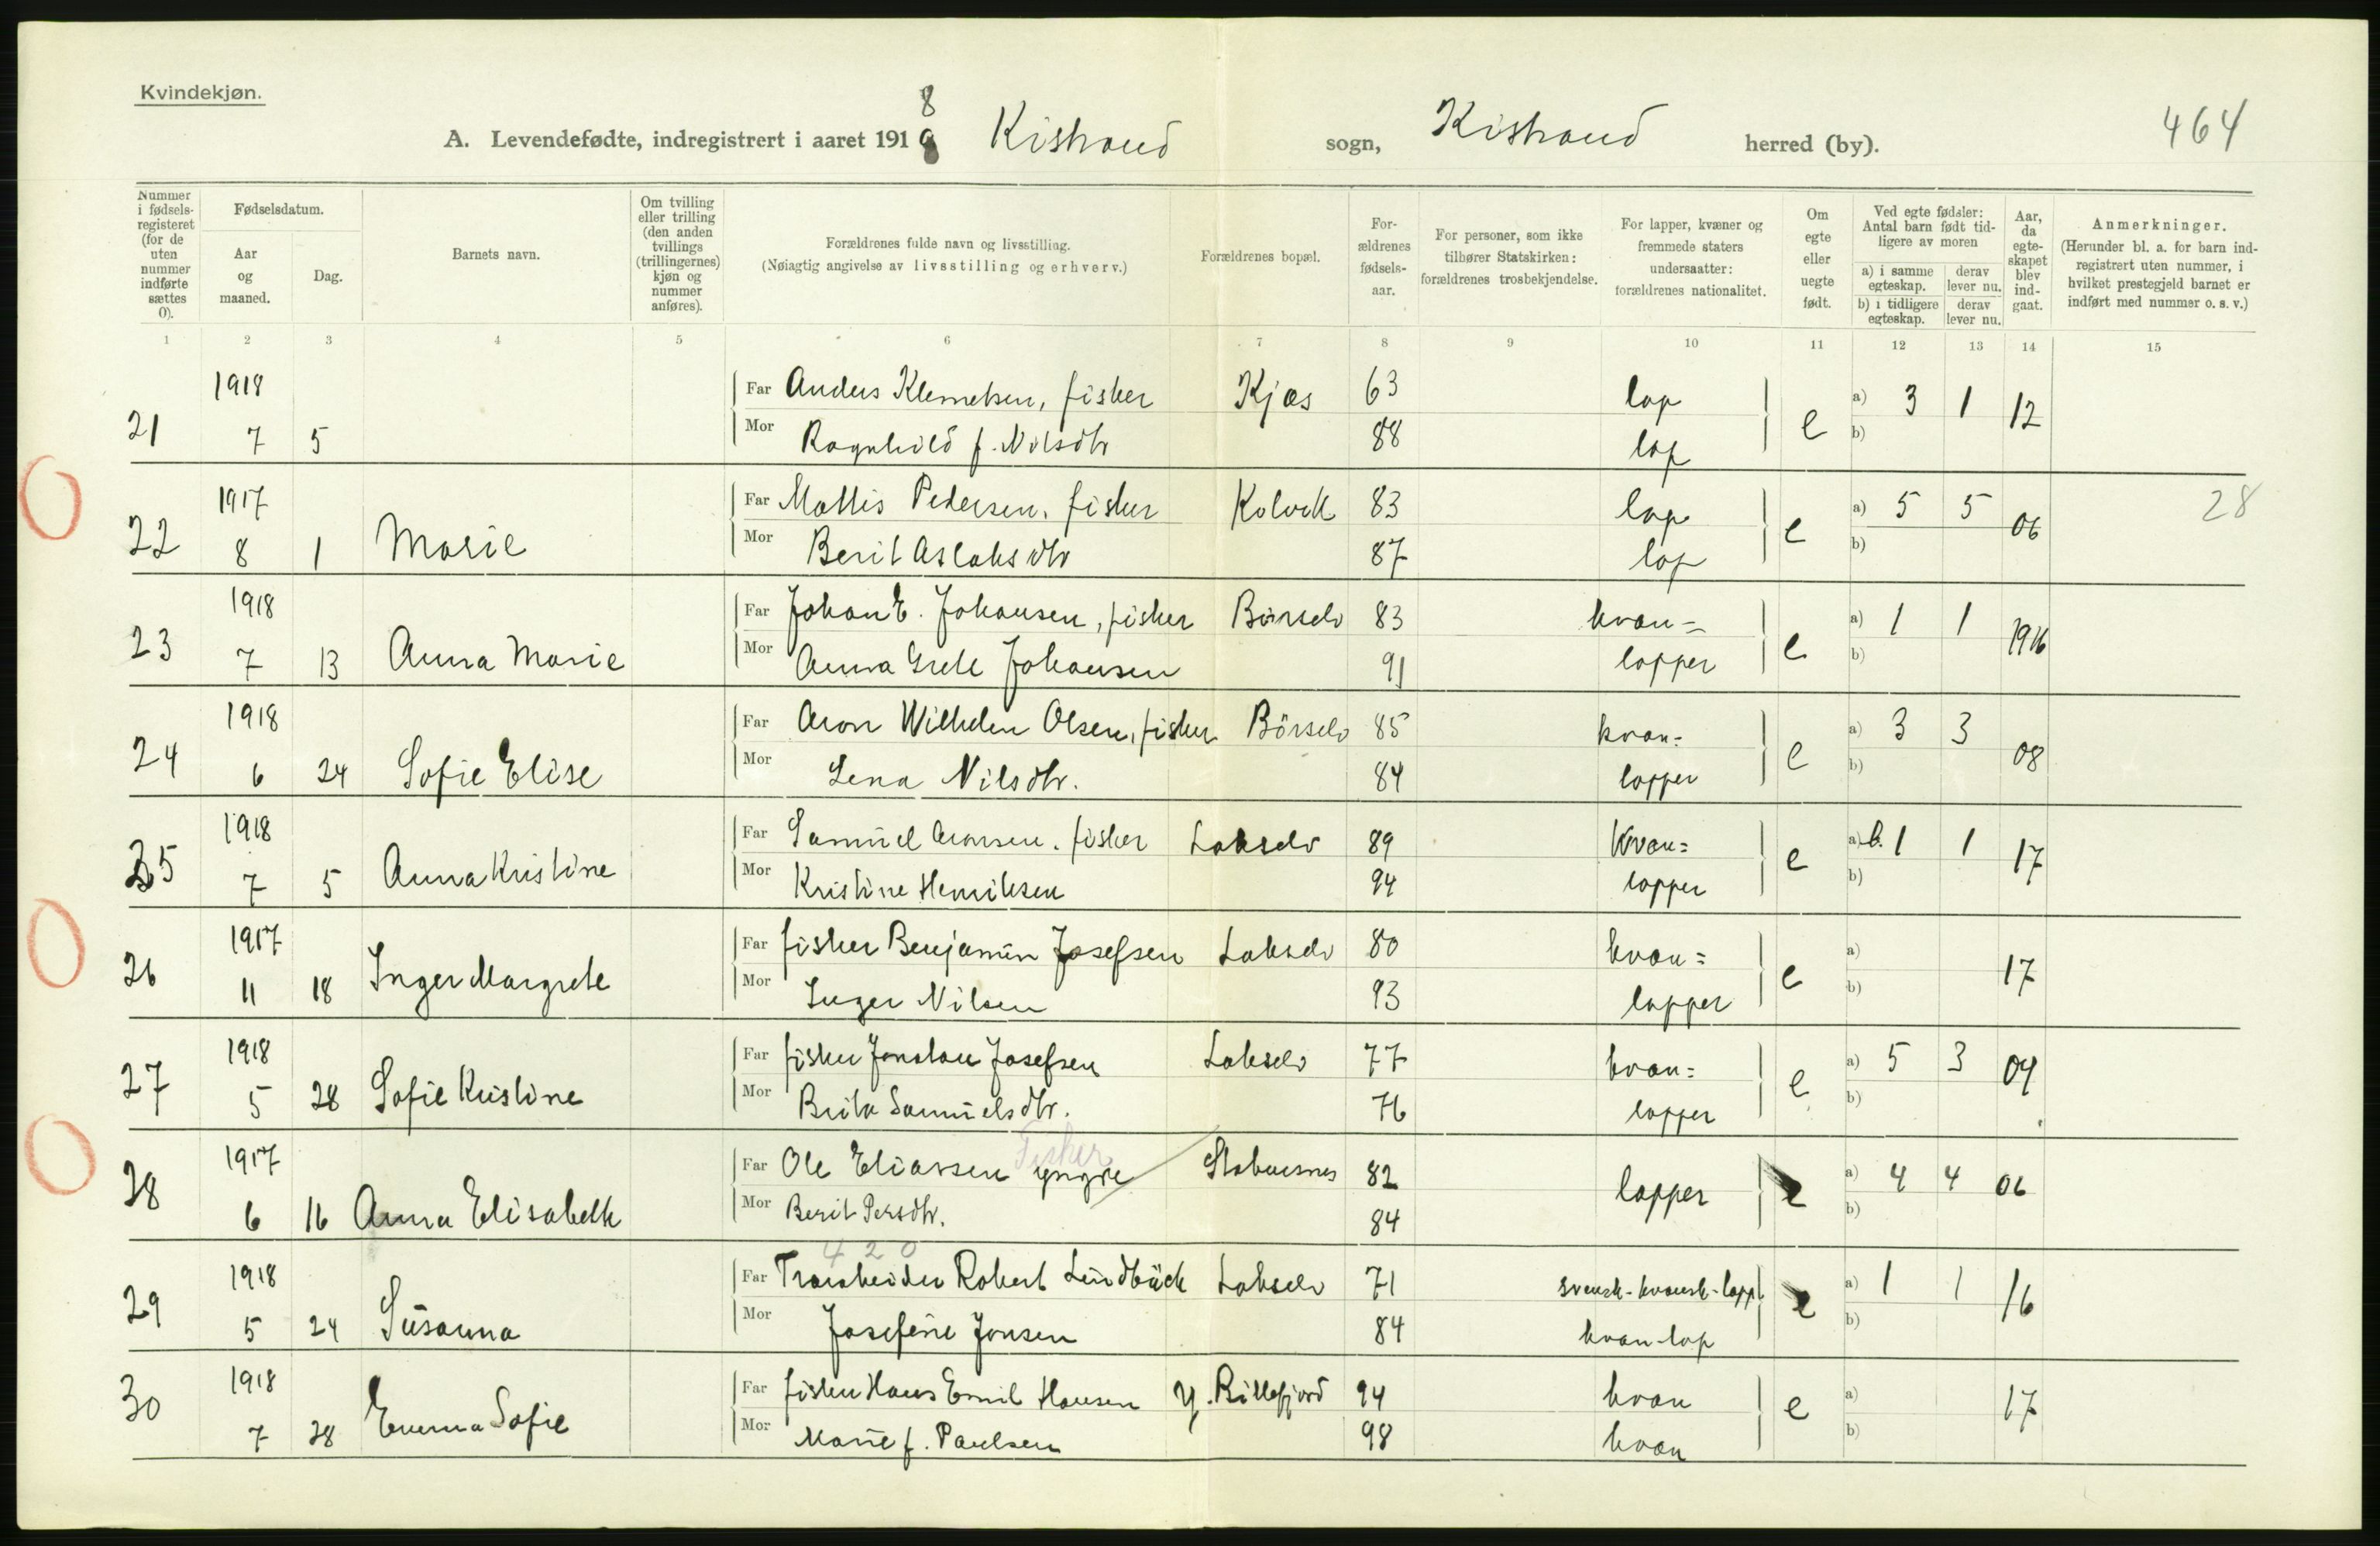 Kvindekjøn.
A. Levendefødte, indregistrert i aaret 1918 Kistrand sogn, Kistrand herred (by). 464
Nummer i fødselsregisteret (for de uten nummer indførte sættes 0).
Fødselsdatum.
Aar og maaned.
Dag.
Barnets navn.
Om tvilling eller trilling (den anden tvillings (trillingernes) kjøn og nummer anføres).
Forældrenes fulde navn og livsstilling.
(Nøiagtig angivelse av livsstilling og erhverv.)
Forældrenes bopæl.
Forældrenes fødselsaar.
For personer, som ikke tilhører Statskirken: forældrenes trosbekjendelse.
For lapper, kvæner og fremmede staters undersaatter: forældrenes nationalitet.
Om egte eller uegte født.
Ved egte fødsler: Antal barn født tidligere av moren
a) i samme egteskap. derav lever nu.
b) i tidligere egteskap. derav lever nu.
Aar, da egteskapet blev indgaat.
Anmerkninger.
(Herunder bl. a. for barn indregistrert uten nummer, i hvilket prestegjeld barnet er indført med nummer o. s. v.)
1 2 3 4 5 6 7 8 9 10 11 12 13 14 15
1918 Far Anders Klemetsen, fisker Kjæs 63 lap a) 3 1 12
21 7 5 Mor Ragnhild f. Nilsdtr 88 lap e b)
1917 Far Mattis Pedersen, fisker Kolvik 83 lap a) 5 5 06 28
22 8 1 Marie Mor Berit Aslaksdtr 87 lap e b)
1918 Far Johan E. Johansen, fisker Börselv 83 kvæn= a) 1 1 1916
23 7 13 Anna Marie Mor Anna Grete Johansen 91 lapper e b)
1918 Far Aron Wilhelm Olsen, fisker Börselv 85 kvæn= a) 3 3 08
24 6 24 Sofie Elise Mor Lena Nilsdtr. 84 lapper e b)
1918 Far Samuel Aronsen, fisker Lakselv 89 Kvæn= a) b. 1 1 17
25 7 5 Anna Kristine Mor Kristine Henriksen 94 lapper e b)
1917 Far fisker Benjamin Josefsen Lakselv 80 kvæn= a) 17
26 11 18 Inger Margrete Mor Inger Nilsen 93 lapper e b)
1918 Far fisker Jonatan Josefsen Lakselv 77 kvæn= a) 5 3 09
27 5 28 Sofie Kristine Mor Brita Samuelsdtr. 76 lapper e b)
1917 Far Ole Eliassen yngre Fisker Stabursnes 82 lapper a) 4 4 06
28 6 16 Anna Elisabeth Mor Berit Persdtr. 84 e b)
420
1918 Far Træarbeider Robert Lindbäck Lakselv 71 svensk-kvænsk-lapp a) 1 1 16
29 5 24 Susanna Mor Josefine Jonsen 84 kvæn-lap e b)
1918 Far fisker Hans Emil Hansen Y. Billefjord 94 kvæn a) 17
30 7 28 Emma Sofie Mor Marie f. Paulsen 98 kvæn e b)